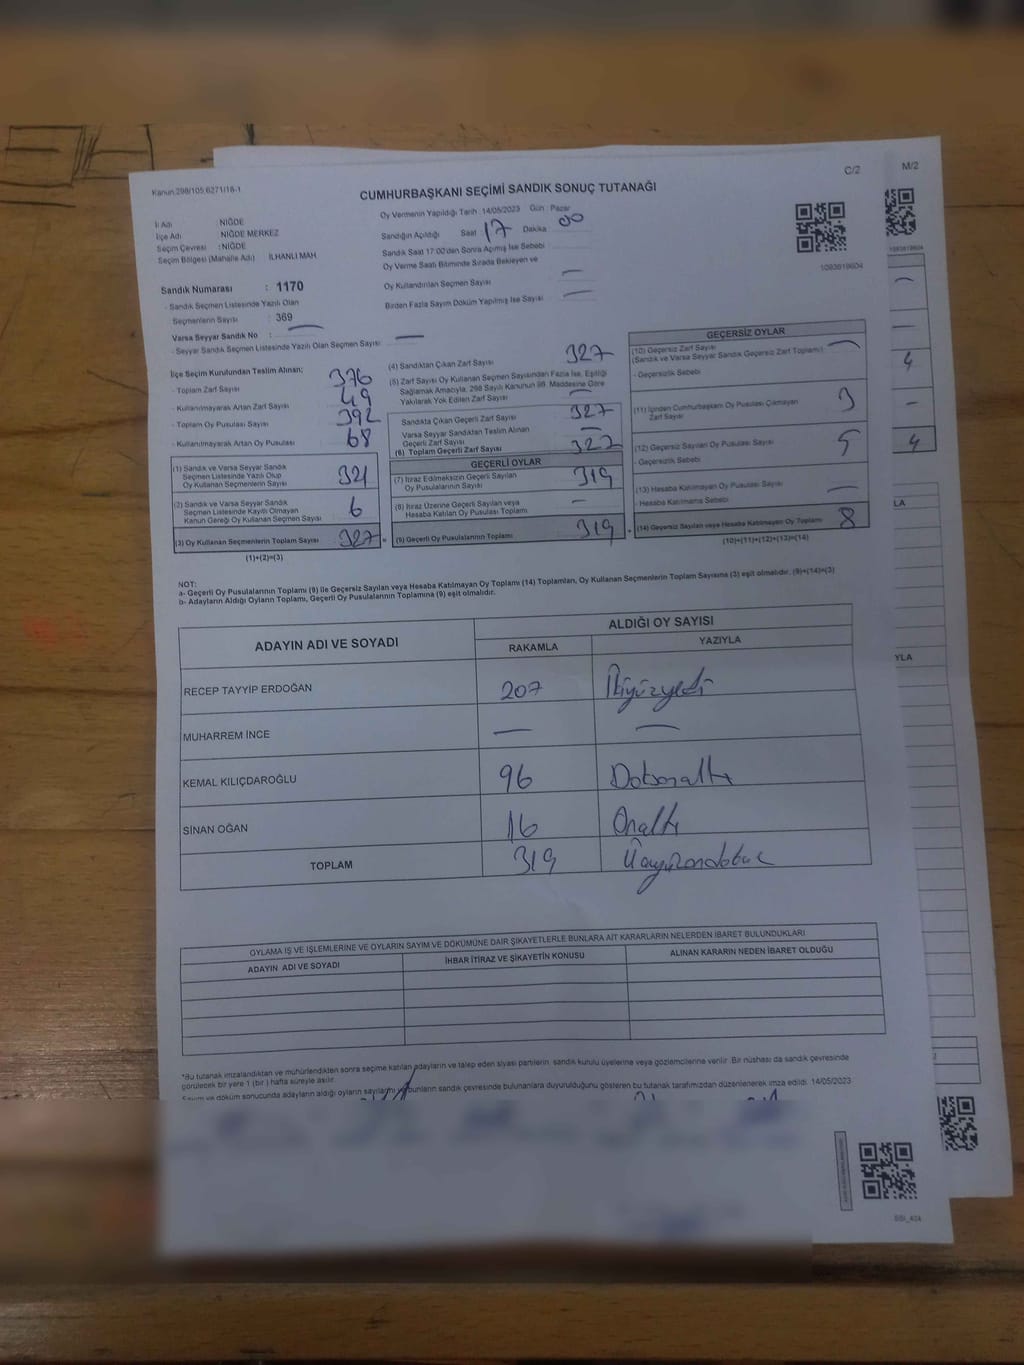 Kanun 298/105;6271/18-1
C/2
M/2
CUMHURBAŞKANI SEÇİMİ SANDIK SONUÇ TUTANAĞI
İl Adı : NİĞDE
İlçe Adı : NİĞDE MERKEZ
Seçim Çevresi : NİĞDE
Seçim Bölgesi (Mahalle Adı) İLHANLI MAH.
Oy Vermenin Yapıldığı Tarih : 14/05/2023 Gün : Pazar
Sandığın Açıldığı Saat : 17 Dakika : 00
Sandık Saat 17:00'den Sonra Açılmış İse Sebebi
Oy Verme Saati Bitiminde Sırada Bekleyen ve
Oy Kullandırılan Seçmen Sayısı —
Birden Fazla Sayım Döküm Yapılmış İse Sayısı —
1093619604
Sandık Numarası : 1170
- Sandık Seçmen Listesinde Yazılı Olan
Seçmenlerin Sayısı : 369
Varsa Seyyar Sandık No : —
- Seyyar Sandık Seçmen Listesinde Yazılı Olan Seçmen Sayısı —
İlçe Seçim Kurulundan Teslim Alınan;
- Toplam Zarf Sayısı 376
- Kullanılmayarak Artan Zarf Sayısı 49
- Toplam Oy Pusulası Sayısı 392
- Kullanılmayarak Artan Oy Pusulası 68
(1) Sandık ve Varsa Seyyar Sandık
Seçmen Listesinde Yazılı Olup
Oy Kullanan Seçmenlerin Sayısı 321
(2) Sandık ve Varsa Seyyar Sandık
Seçmen Listesinde Kayıtlı Olmayan
Kanun Gereği Oy Kullanan Seçmen Sayısı 6
(3) Oy Kullanan Seçmenlerin Toplam Sayısı 327
(1)+(2)=(3)
(4) Sandıktan Çıkan Zarf Sayısı 327
(5) Zarf Sayısı Oy Kullanan Seçmen Sayısından Fazla İse, Eşitliği
Sağlamak Amacıyla, 298 Sayılı Kanunun 98. Maddesine Göre
Yakılarak Yok Edilen Zarf Sayısı —
Sandıkta Çıkan Geçerli Zarf Sayısı 327
Varsa Seyyar Sandıktan Teslim Alınan
Geçerli Zarf Sayısı —
(6) Toplam Geçerli Zarf Sayısı 327
GEÇERLİ OYLAR
(7) İtiraz Edilmeksizin Geçerli Sayılan
Oy Pusulalarının Sayısı 319
(8) İtiraz Üzerine Geçerli Sayılan veya
Hesaba Katılan Oy Pusulası Toplamı —
(9) Geçerli Oy Pusulalarının Toplamı 319
GEÇERSİZ OYLAR
(10) Geçersiz Zarf Sayısı
(Sandık ve Varsa Seyyar Sandık Geçersiz Zarf Toplamı) —
- Geçersizlik Sebebi
(11) İçinden Cumhurbaşkanı Oy Pusulası Çıkmayan
Zarf Sayısı 3
(12) Geçersiz Sayılan Oy Pusulası Sayısı 5
- Geçersizlik Sebebi
(13) Hesaba Katılmayan Oy Pusulası Sayısı —
- Hesaba Katılmama Sebebi
(14) Geçersiz Sayılan veya Hesaba Katılmayan Oy Toplamı 8
(10)+(11)+(12)+(13)=(14)
4
4
LA
YLA
NOT:
a- Geçerli Oy Pusulalarının Toplamı (9) ile Geçersiz Sayılan veya Hesaba Katılmayan Oy Toplamı (14) Toplamları, Oy Kullanan Seçmenlerin Toplam Sayısına (3) eşit olmalıdır. (9)+(14)=(3)
b- Adayların Aldığı Oyların Toplamı, Geçerli Oy Pusulalarının Toplamına (9) eşit olmalıdır.
ADAYIN ADI VE SOYADI
ALDIĞI OY SAYISI
RAKAMLA YAZIYLA
RECEP TAYYİP ERDOĞAN 207 İkiyüzyedi
MUHARREM İNCE — —
KEMAL KILIÇDAROĞLU 96 Doksanaltı
SİNAN OĞAN 16 Onaltı
TOPLAM 319 Üçyüzondokuz
OYLAMA İŞ VE İŞLEMLERİNE VE OYLARIN SAYIM VE DÖKÜMÜNE DAİR ŞİKAYETLERLE BUNLARA AİT KARARLARIN NELERDEN İBARET BULUNDUKLARI
ADAYIN ADI VE SOYADI İHBAR İTİRAZ VE ŞİKAYETİN KONUSU ALINAN KARARIN NEDEN İBARET OLDUĞU
*Bu tutanak imzalandıktan ve mühürlendikten sonra seçime katılan adayların ve talep eden siyasi partilerin, sandık kurulu üyelerine veya gözlemcilerine verilir. Bir nüshası da sandık çevresinde
görülecek bir yere 1 (bir ) hafta süreyle asılır.
Sayım ve döküm sonucunda adayların aldığı oyların sayılarını ve bunların sandık çevresinde bulunanlara duyurulduğunu gösteren bu tutanak tarafımızdan düzenlenerek imza edildi. 14/05/2023